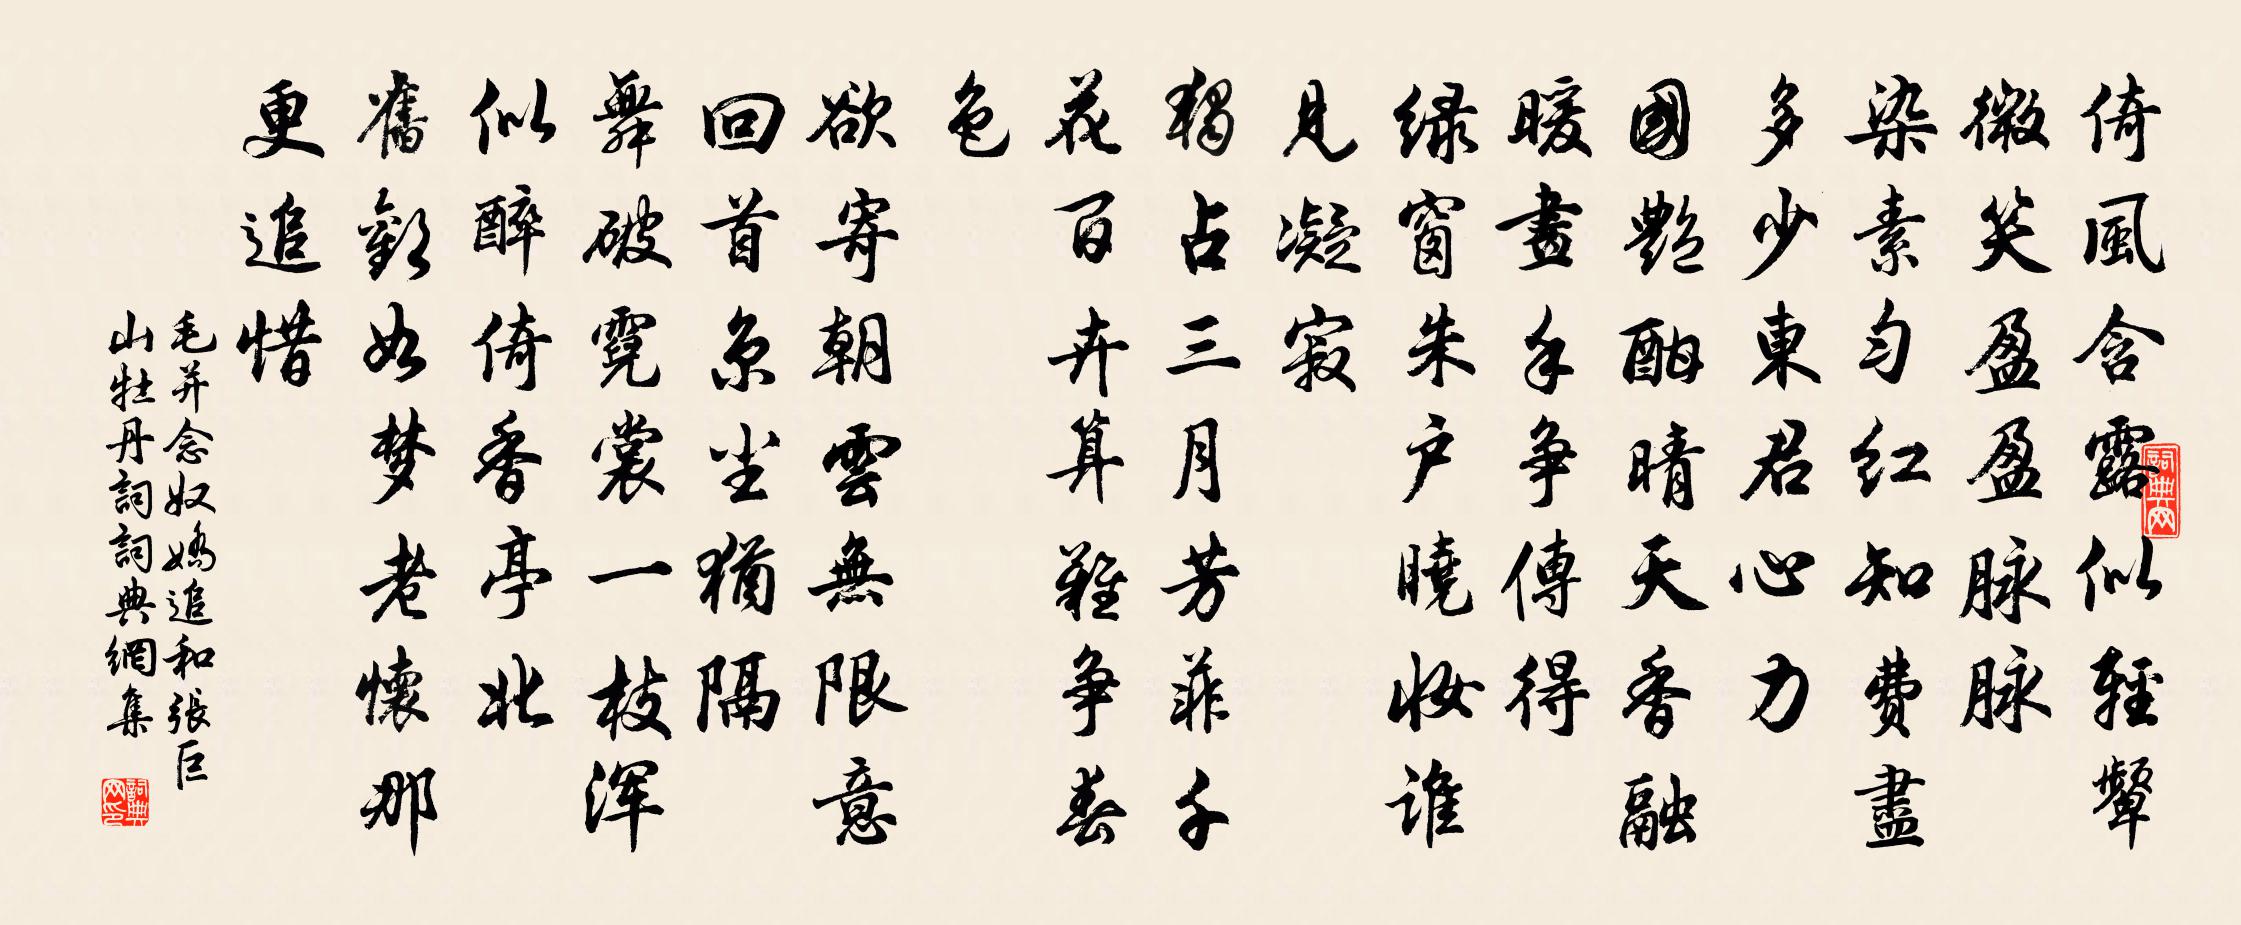 倚風含露似輕顰
微笑盈盈脉脉
染素匀红知費盡
多少東君心力
國艷酣晴天香融
暖畫手争傳得
绿窗朱户曉妆誰
見凝寂
獨占三月芳菲千
花百卉算難争春
色
欲寄朝雲無限意
回首京尘猶隔
舞破霓裳一枝浑
似醉倚香亭北
舊歡如梦老懷那
更追惜
毛并念奴嬌追和張巨
山牡丹詞詞典網集
詞典网
詞典网印